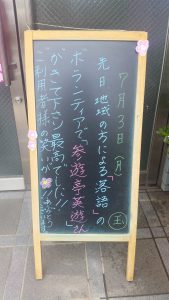 7月3日(月)
玉
先日地域の方による「落語」の
ボランティアで「参遊亭英遊」さん
がきて下さい最高でした!!
ご利用者様の笑いが!!
ありがとう